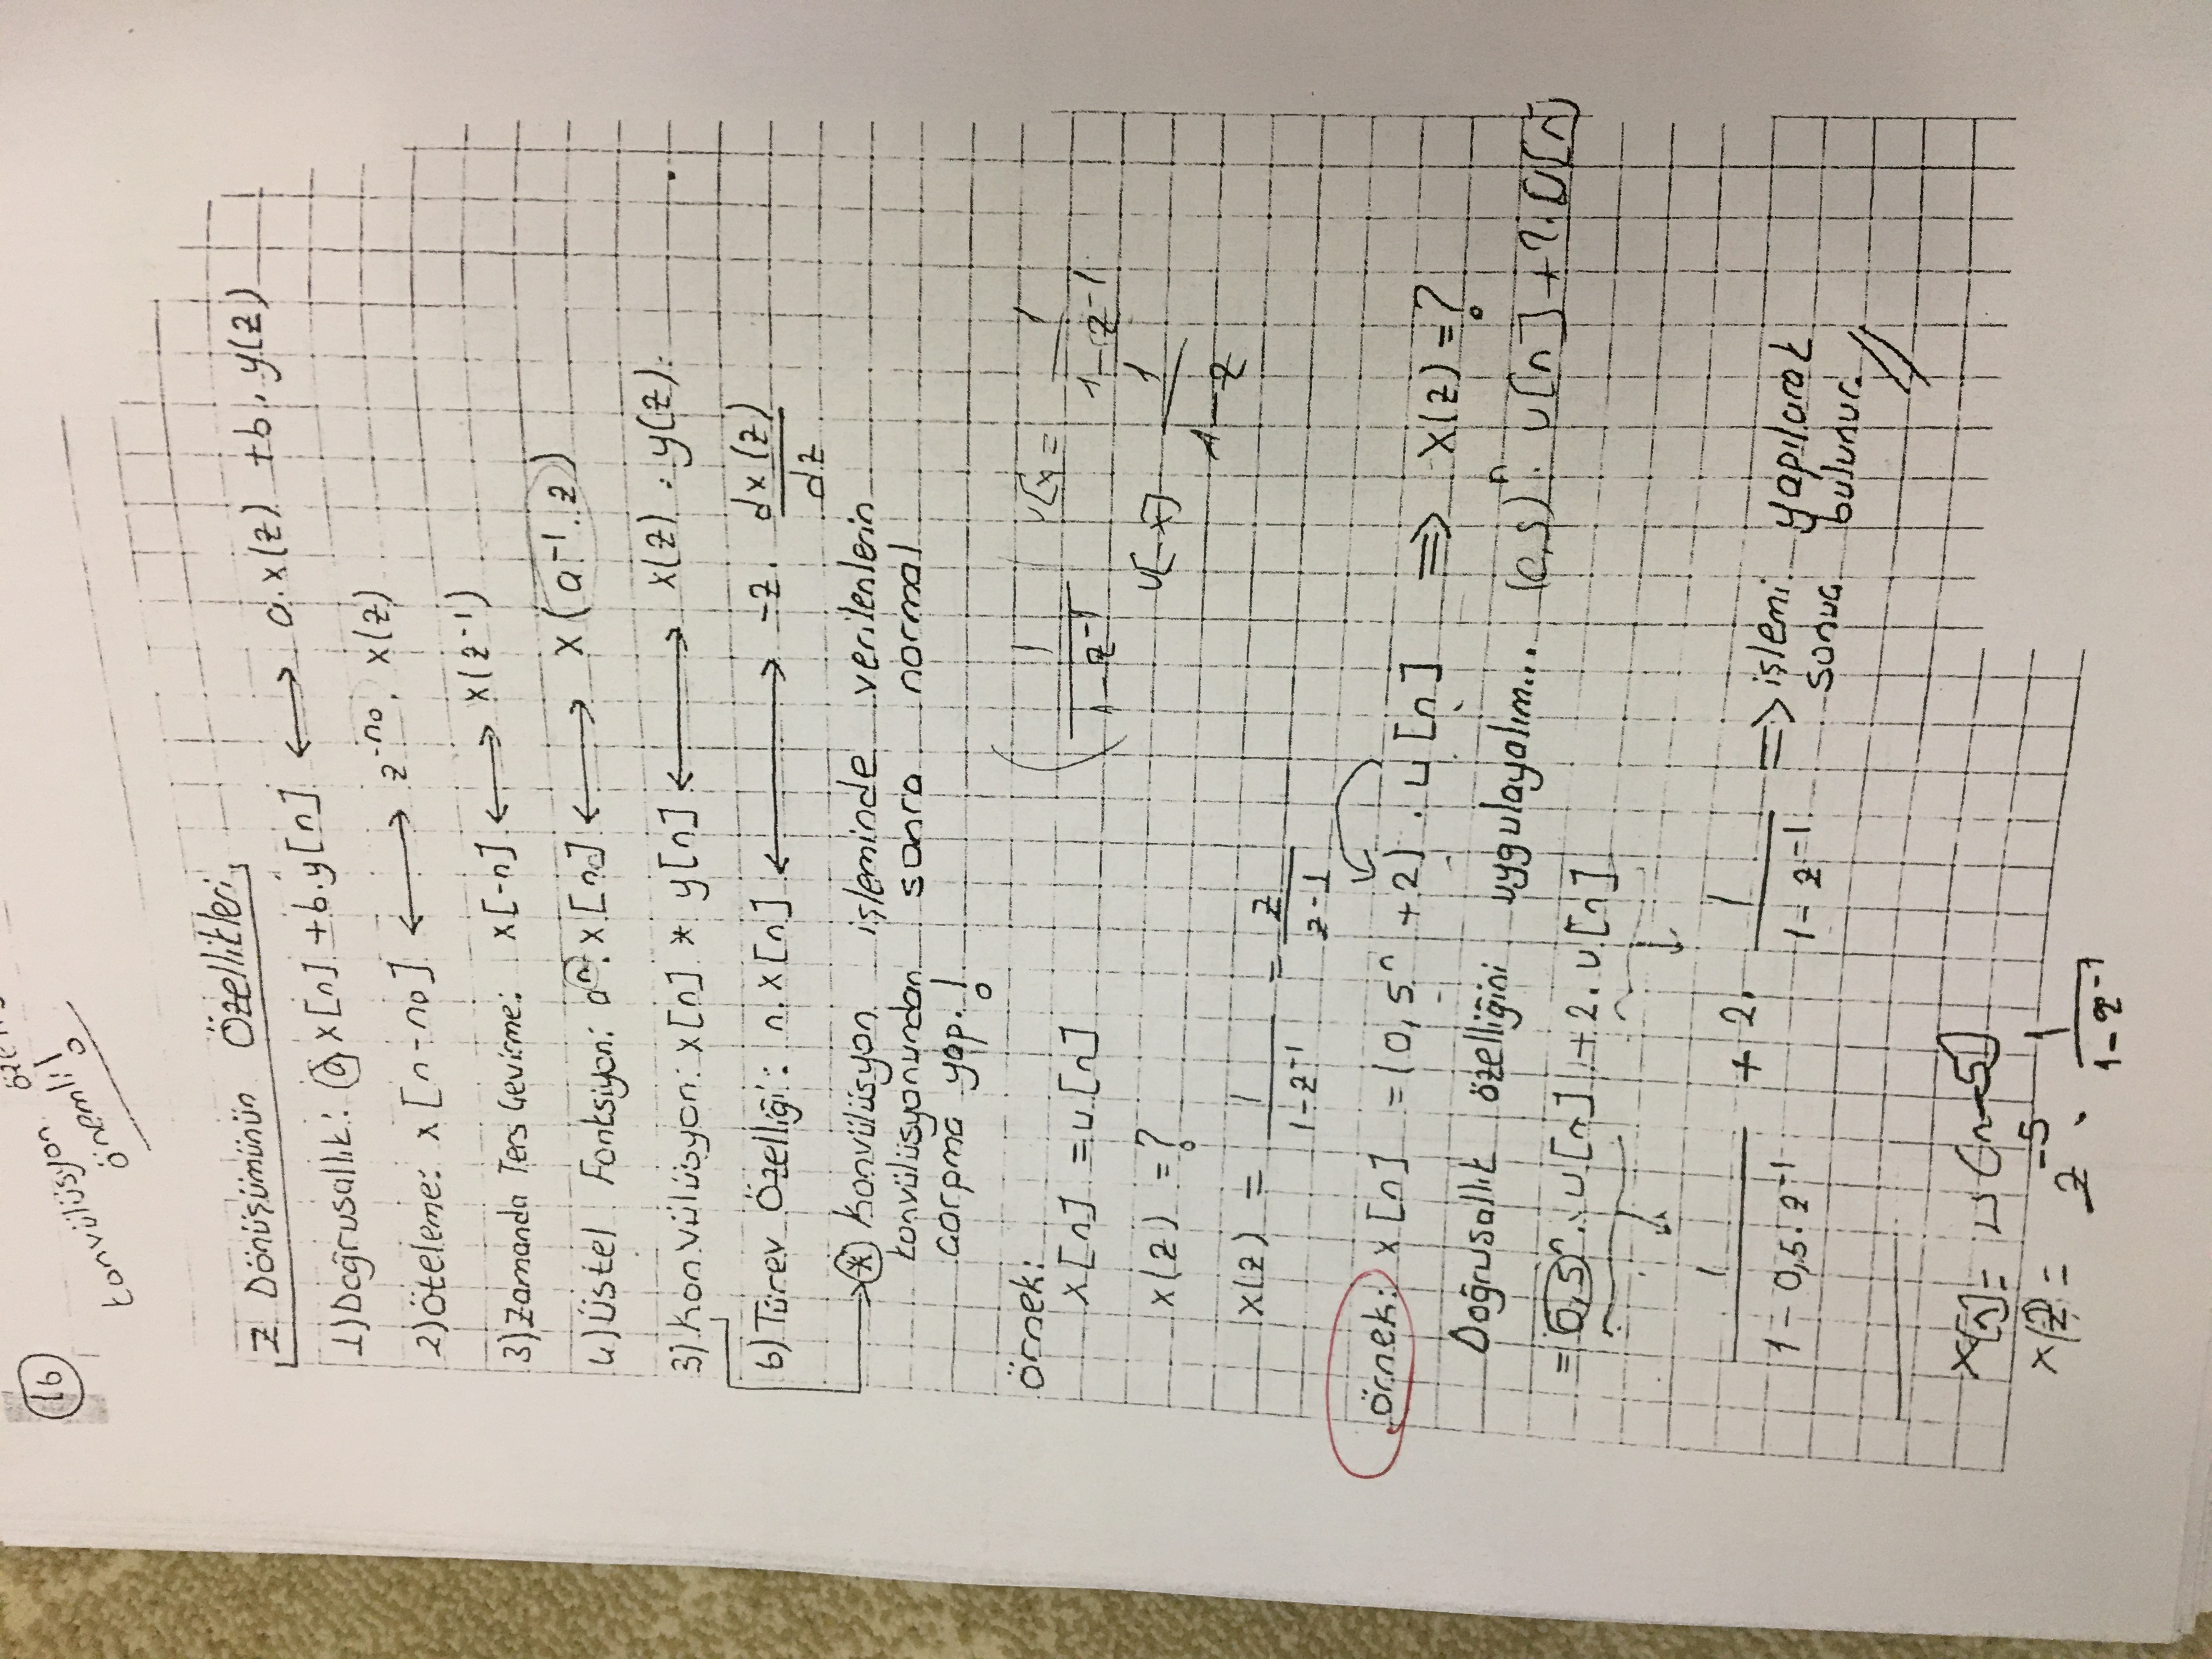 16
konvülüsyon
önemli!
Z Dönüşümünün Özellikleri
1) Doğrusallık: a x[n] + b.y[n] ⟷ a.x(z) + b.y(z)
2) Öteleme: x[n-n₀] ⟷ z^-n₀ . x(z)
3) Zamanda Ters Çevirme: x[-n] ⟷ x(z^-1)
4) Üstel Fonksiyon: a^n . x[n] ⟷ x(a^-1 . z)
3) Konvülüsyon: x[n] * y[n] ⟷ x(z) . y(z).
6) Türev Özelliği: n.x[n] ⟷ -z. dx(z)/dz
* Konvülüsyon işleminde verilenlerin
konvülüsyonundan sonra normal
çarpma yap.!
örnek:
x[n] = u[n]
( 1/(1-z^-1) u[x = 1/(1-z^-1)
x(z) = ?
u[-x] 1/(1-z)
x(z) = 1/(1-z^-1) = z/(z-1)
örnek: x[n] = (0,5^n + 2) . u[n] ⇒ X(z) = ?
Doğrusallık özelliğini uygulayalım...
(0,5)^n . u[n] + 2.u[n]
= 0,5^n . u[n] + 2.u[n]
1/(1-0,5.z^-1) + 2. 1/(1-z^-1) ⇒ işlemi yapılarak
sonuç bulunur.
x[n] = u[n-5]
x(z) = z^-5 . 1/(1-z^-1)